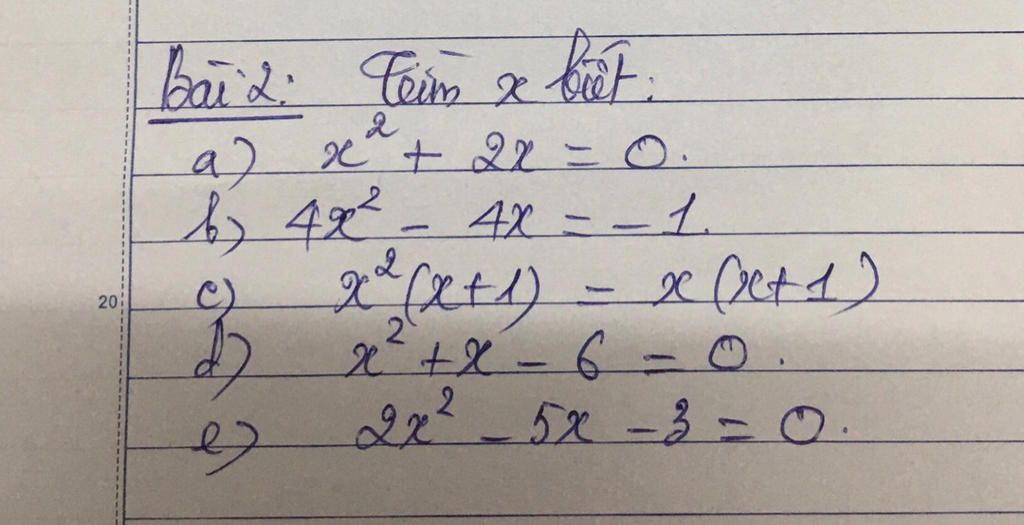 Bài 2: Tìm x biết:
a) x² + 2x = 0.
b) 4x² - 4x = - 1.
c) x² (x+1) = x (x+1)
20
d) x² + x - 6 = 0.
e) 2x² - 5x - 3 = 0.